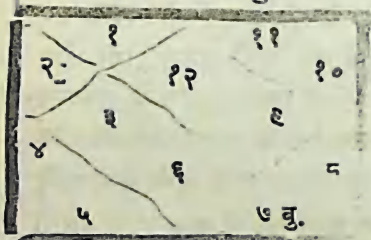 १ ११
२ १२ १०
३ ९
४ ६ ८
५ ७ बु.